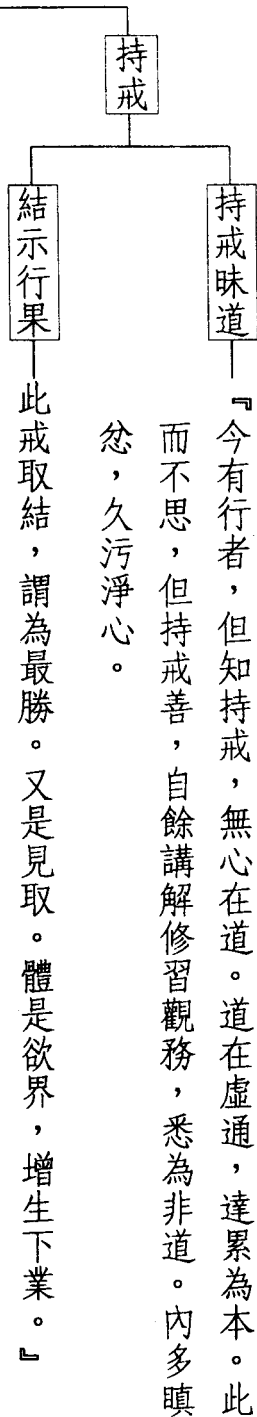 持戒
持戒昧道
『今有行者，但知持戒，無心在道。道在虛通，達累為本。此
而不思，但持戒善，自餘講解修習觀務，悉為非道。內多瞋
忿，久污淨心。
結示行果
此戒取結，謂為最勝。又是見取。體是欲界，增生下業。』